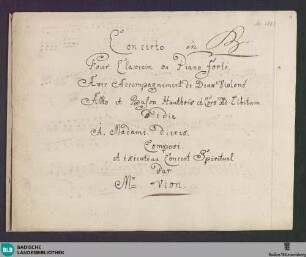 Concerto in B
Pour Clavecin ou Piano forte
Avec Accompagnement de Deux Violons
Alto et Basson Hautbois et Cors Ad Libitum
Dedie
A Madame
Composé
et executé au Concert Spirituel
Par
Mr Vion.
BLB
BADISCHE
LANDESBIBLIOTHEK